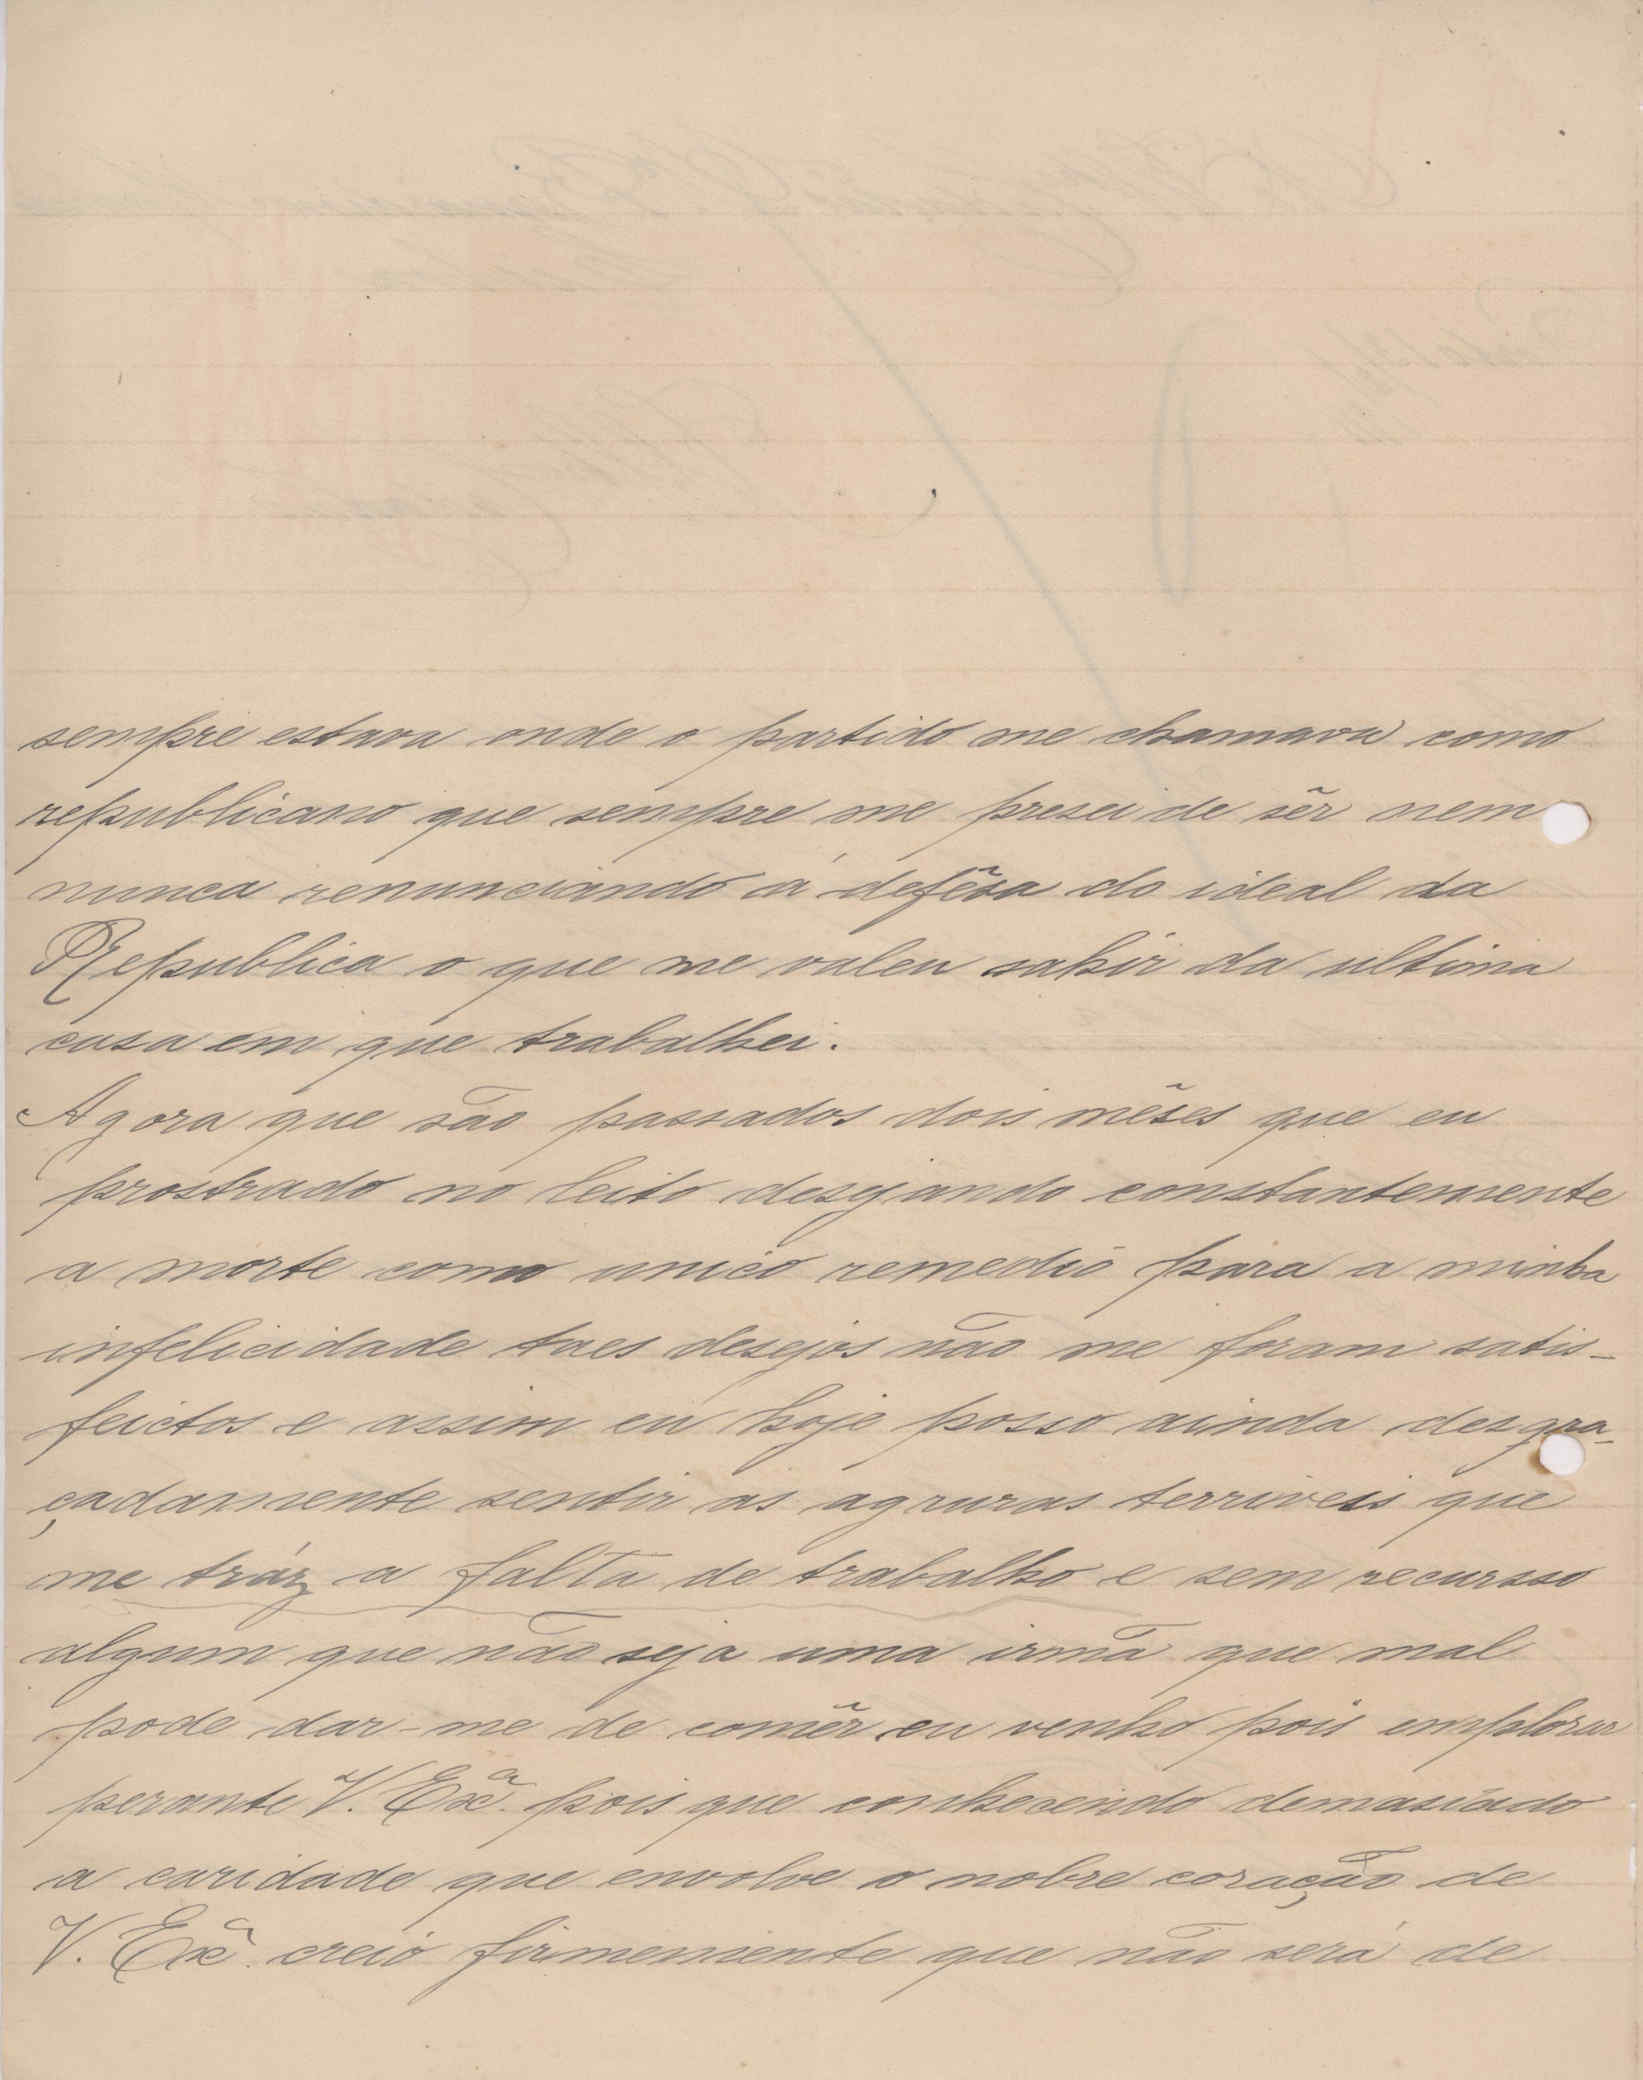 sempre estava onde o partido me chamava como
republicano que sempre me presei de sêr nem
nunca renunciando á defêsa do ideal da
Republica o que me valeu sahir da ultima
casa em que trabalhei.
Agora que são passados dois mêses que eu
prostrado no leito desejando constantemente
a morte como unico remedio para a minha
infelicidade taes desejos não me foram satis-
feictos e assim eu hoje posso ainda desgra-
çadamente sentir as agruras terriveis que
me tráz a falta de trabalho e sem recursso
algum que não seja uma irmã que mal
pode dar-me de comêr eu venho pois implorar
perante V. Exª. pois que conhecendo demasiado
a caridade que envolve o nobre coração de
V. Exª. creio firmemente que não será de